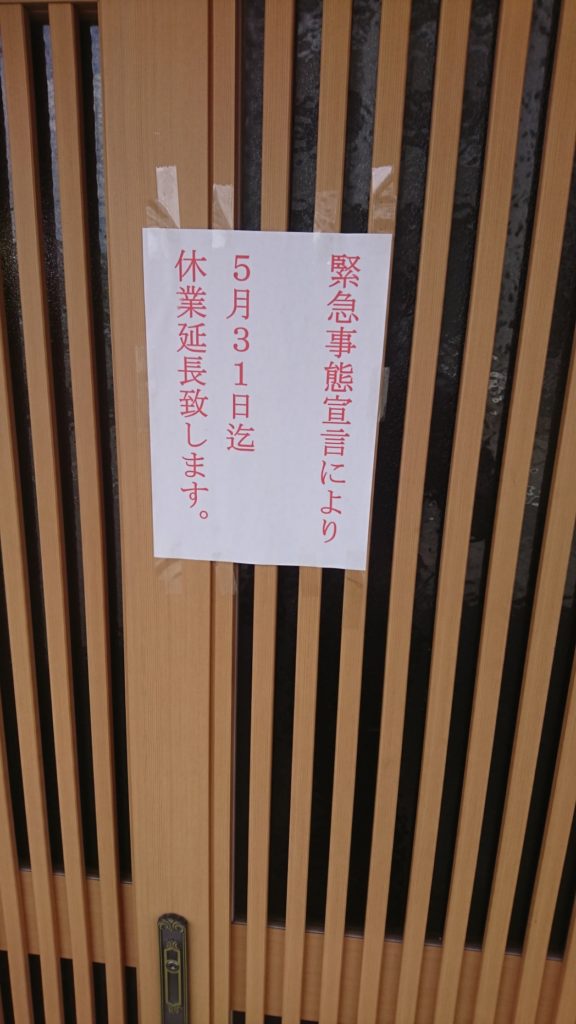 緊急事態宣言により
５月３１日迄
休業延長致します。